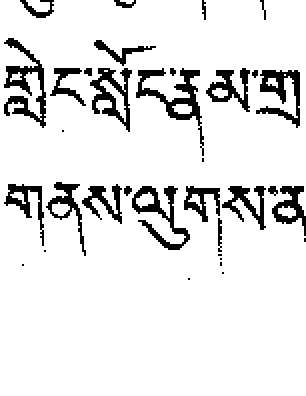 གླེང་སློང་རྣམ་གྲ
གནས་ལུགས་ན